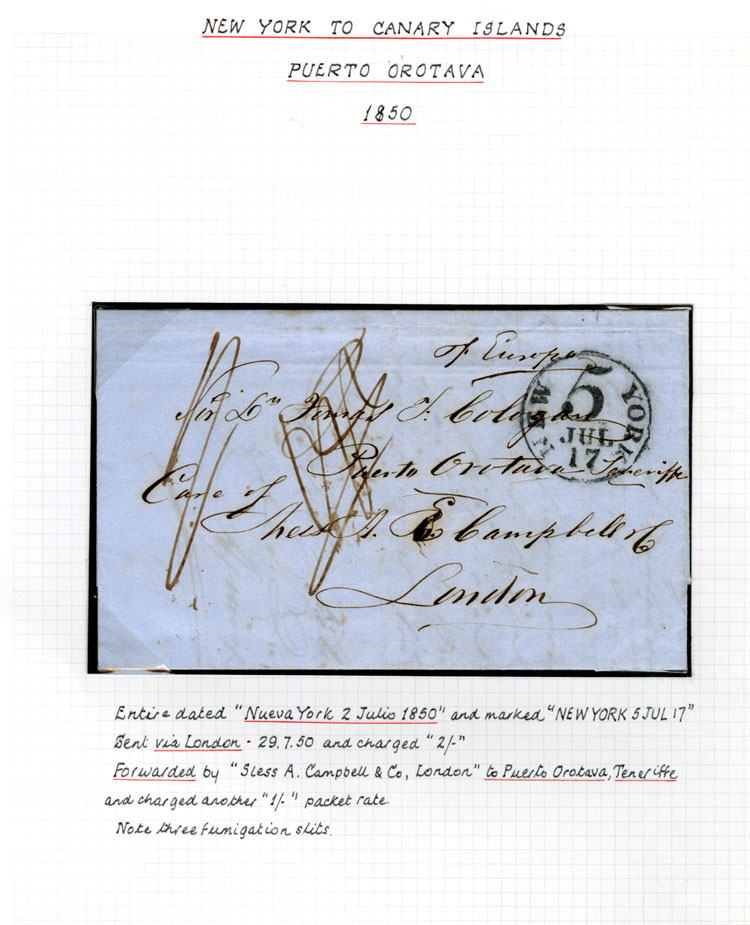 NEW YORK TO CANARY ISLANDS
PUERTO OROTAVA
1850
of Europa
Sor Dn Tomas F. Cologan
Puerto Orotava Teneriffe
Care of
A. E Campbell & C
London
NEW YORK
5
JUL
17
Entire dated "Nueva York 2 Julio 1850" and marked "NEW YORK 5 JUL 17"
Sent via London - 29.7.50 and charged "2/-"
Forwarded by "Sless A. Campbell & Co, London" to Puerto Orotava, Teneriffe
and charged another "1/-" packet rate.
Note three fumigation slits.